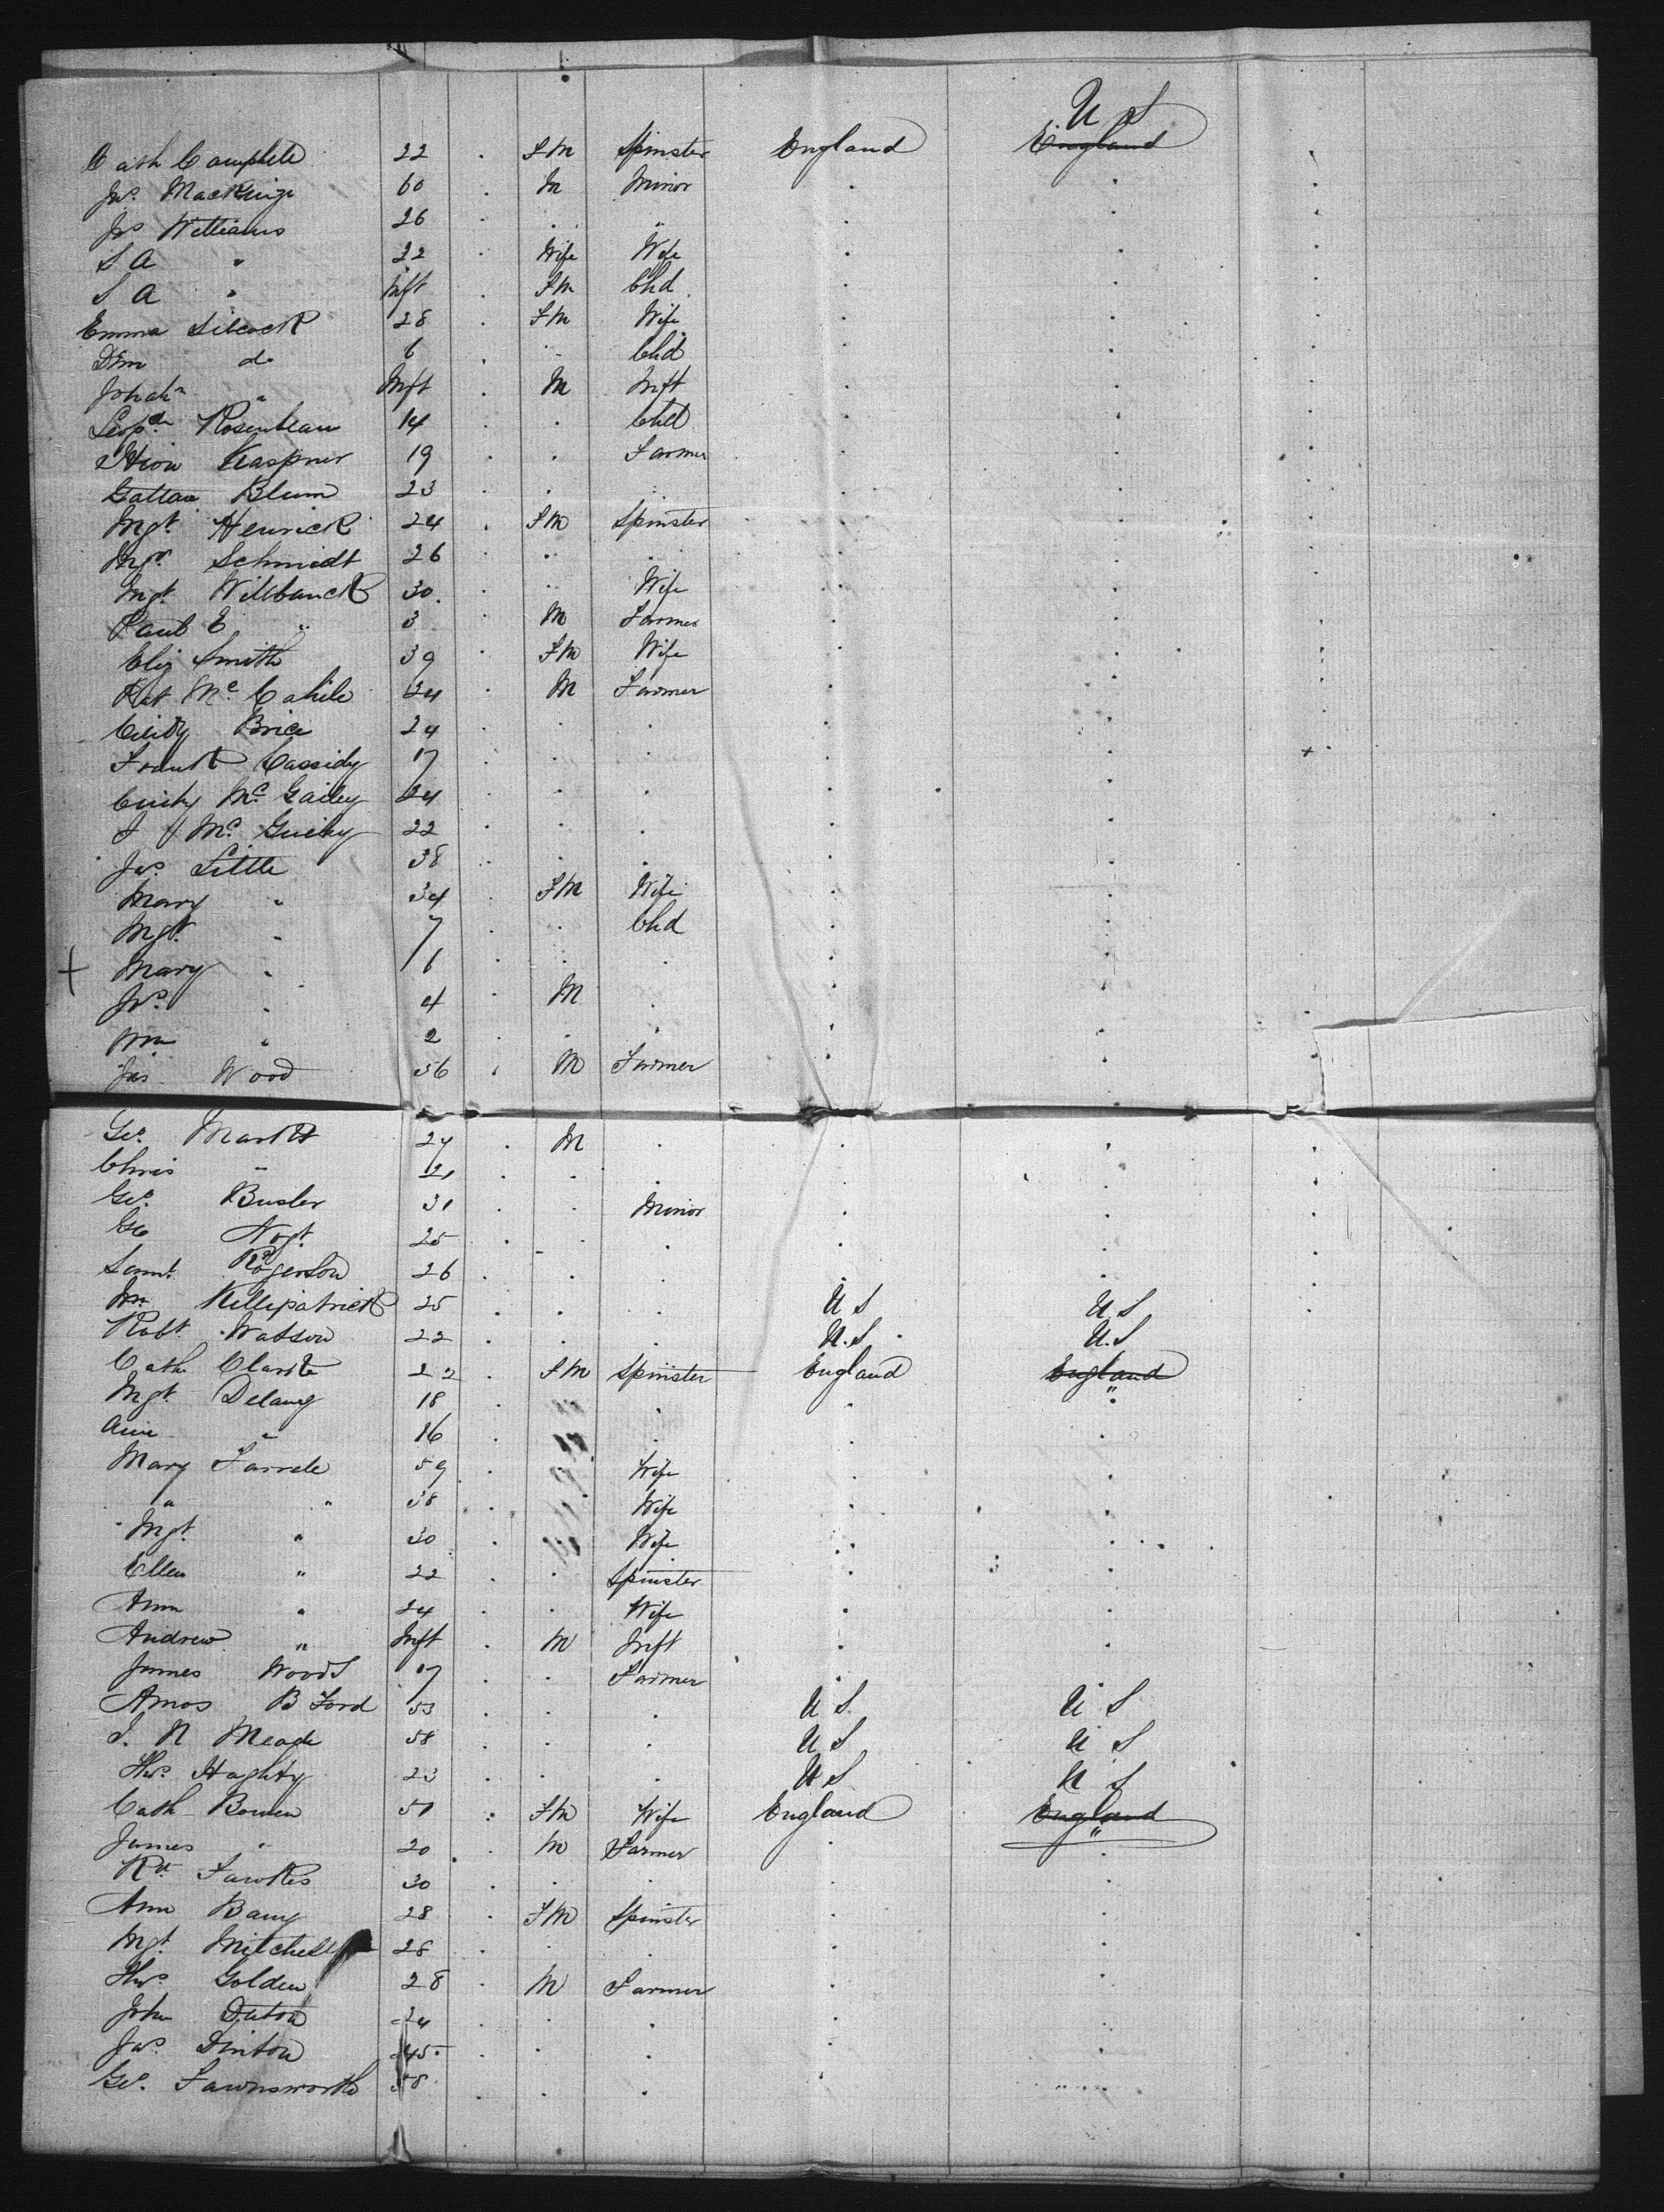 U S
Cath Campbell 22 . FM Spinster England England
Jno. MacKenzie 60 . M Minor . .
Jno Williams 26 . . " . .
S A " 22 . Wife Wife . .
S A " Inft . FM Chd . .
Emma Silcock 28 . FM Wife . .
do 6 . " Chd . .
" Inft . M Inft . .
Rosenbleau 14 . . Chd . .
Kaspner 19 . . Farmer . .
Blum 23 . . . . .
Mgt. Henrick 24 . FM Spinster . .
Schmidt 26 . " . . .
Mgt. Willbanck 30 . " Wife . .
Paul E " 3 . M Farmer . .
Eliz Smith 39 . FM Wife . .
Pat Mc Cahill 24 . M Farmer . .
Brice 24 . . . . .
Frank Cassidy 17 . . . . . +
Mc Gailey 24 . . . . .
22 . . . . .
Jno. Little 38 . . . . .
Mary " 34 . FM Wife . .
Mgt. " 7 . . Chd . .
+ Mary " 6 . . . . .
Jno. " 4 . M . . .
Wm " 2 . . . . .
Jas Wood 36 . M Farmer . .
Geo. 27 . M . . .
Chris " 21 . . . . .
Geo. Busler 31 . . Minor . .
Geo 25 . . . . .
Saml. Rogerson 26 . . . . .
Killipatrick 25 . . . U S U.S
Robt. Watson 22 . . . U.S. U.S
Cath Clark 22 FM Spinster England England
Mgt. Delany 18 . . . "
Ann " 16 . . . .
Mary Farrell 59 . Wife . .
" " 38 . Wife . .
Mgt. " 30 . Wife . .
Ellen " 22 . . Spinster . .
Ann " 24 . . Wife . .
Andrew " Inft . M Inft . .
James Woods 17 . . Farmer . .
Amos B Ford 53 . . . U S. U S
Meade 58 . . . U S U S
Thos. 23 . . . U S U S
Cath Bowen 51 . FM Wife England England
James " 20 . M Farmer . "
Fawkes 30 . . . . .
Ann Barry 28 . FM Spinster . .
Mgt. Mitchell 28 . . . . .
Thos Golden 28 . M Farmer . .
John 24 . . . . .
Jno. Dinton 45 . . . . .
Geo. Fawnsworth 58 . . . . .